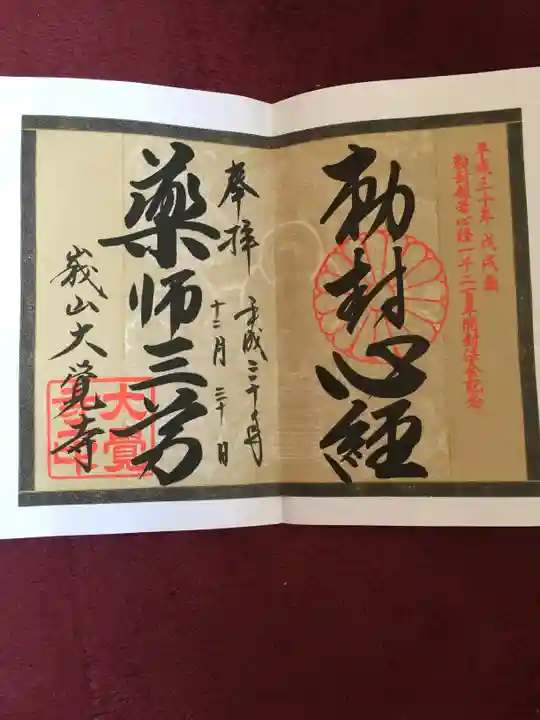 平成三十年 戊戌歳
勅封般若心経一千二百年開封法会記念
勅封心経
奉拝
平成三十年
十二月 三十日
薬師三尊
嵯山大覚寺
大覚